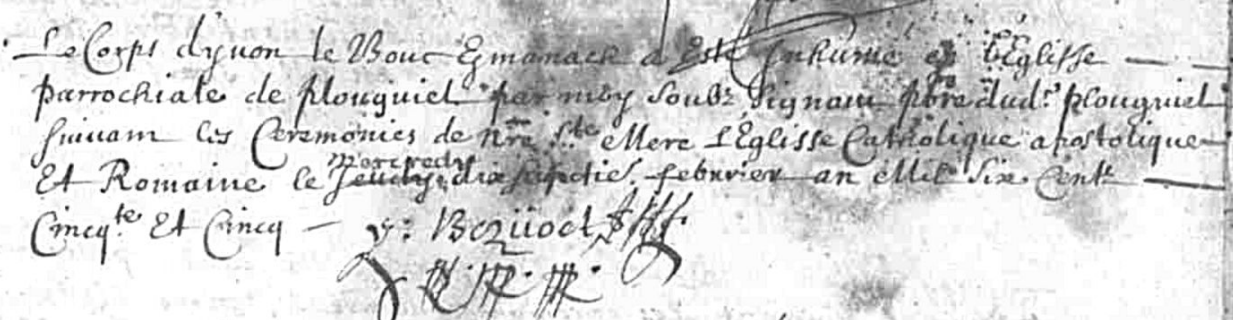 Le Corps d'yvon le Bouc Kmanach a Esté Inhumé en l'Eglisse
parrochiale de plouguiel par moy soubz signant pbre dud.t plouguiel
suivant les Ceremonies de nre S.te Mere L'Eglisse Catholique apostolique
mercredy
Et Romaine le Jeudy dix septies. febvrier an Mil Six Centz
Cincq.te Et Cincq y: Bozuoet